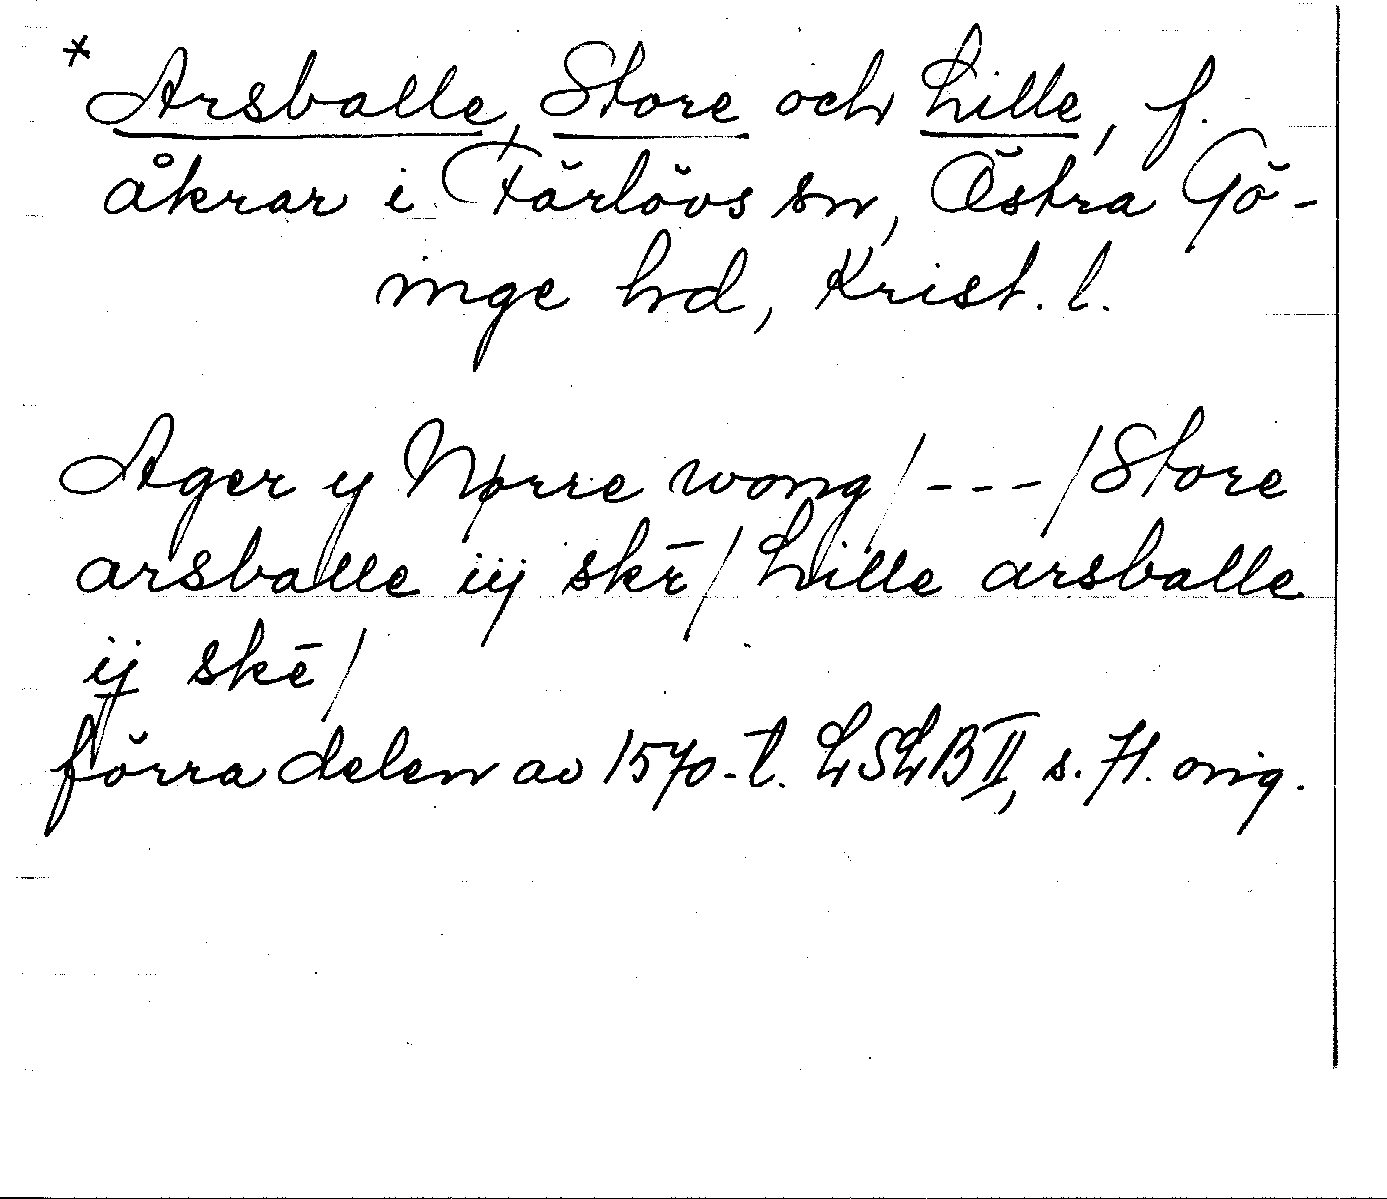 * Arsballe, Store och Lille, f.
åkrar i Färlövs sn, Östra Gö-
inge hd, Krist. l.
Ager y Nørre wong / - - - / Store
arsballe iij skē / Lille arsballe
ij skē /
förra delen av 1570-t. LSLB II, s. 71. orig.